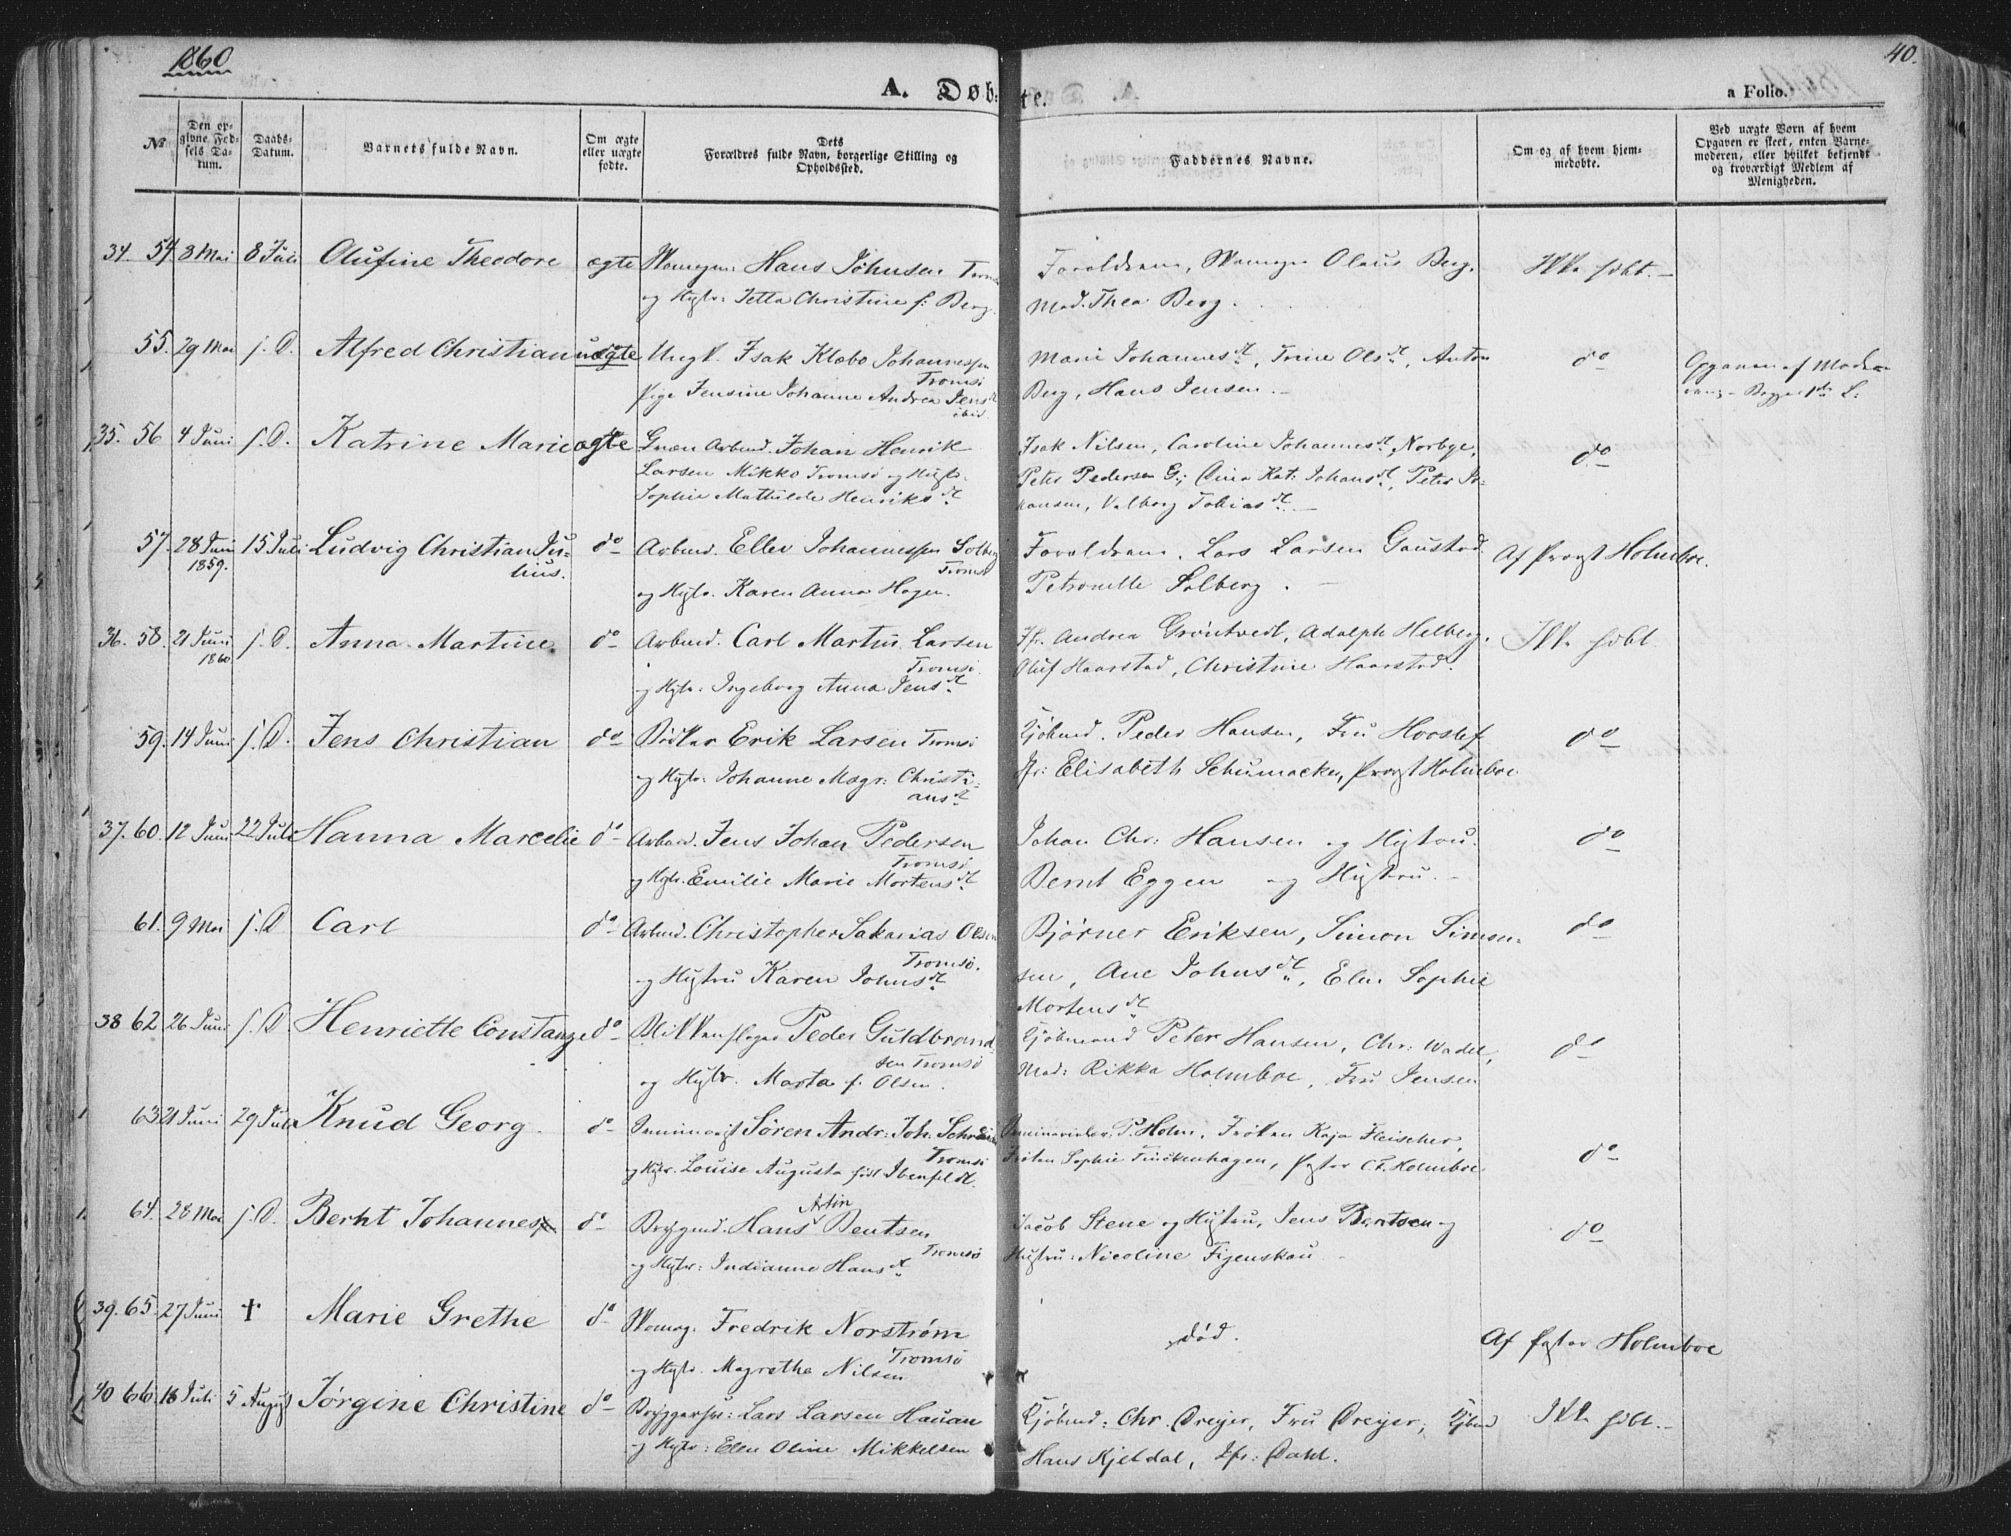 1860
40.
A. Døbte.
a Folio.
№
Den opgivne Fødsels Datum.
Daabs-Datum.
Barnets fulde Navn.
Om ægte eller uægte fødte.
Dets Forældres fulde Navn, borgerlige Stilling og Opholdssted.
Faddernes Navne.
Om og af hvem hjemmedøbte.
Ved uægte Børn af hvem Opgaven er skeet, enten Barnemoderen, eller hvilket bekjendt og troværdigt Medlem af Menigheden.
34. 54. 8 Mai 8 Juli Olufine Theodore ægte Hans Johnsen Tromsø
og Hstr: Jetta Christine f: Berg.
Forældrene, Olaus Berg,
Mad. Thea Berg.
Ikke døbt.
55. 29 Mai s. D. Alfred Christian uægte Ungk. Isak Klæbo Johannessen
Tromsø
Pige Jensine Johanne Andrea Jensdt
ibid.
Marie Johannesdt, Trine Olsdt, Anton
Berg, Hans Jensen.
do
Opgaven af Moderen
35. 56 4 Juni s. D. Katrine Marie ægte Johan Henrik
Larsen Mikko Tromsø og Hstr.
Sophie Mathilde Henriksdt
Isak Nilsen, Caroline Johannesdt, Norbye,
Peter Pedersen G.; Kat: Johansdt, Peter Jo-
hansen, Valborg Tobiasdt
do
57. 28 Juni 15 Juli Ludvig Christian Ju- do Arbmd. Eller Johannessen Solberg
1859. lius. Tromsø
og Hstr. Karen Anna Hagen.
Forældrene, Lars Larsen Gaustad
Petronelle Solberg.
Af Provst Holmboe.
36. 58. 21 Juni s. D. Anna Martine do Arbmd. Carl Martin Larsen
1860. Tromsø
og Hstr: Ingeborg Anna Jensdt
Jfr. Andrea Grøntvedt, Adolph Helberg,
Oluf Haarstad, Christine Haarstad.
Ikke døbt
59. 14 Juni s. D. Jens Christian do Bødker Erik Larsen Tromsø
og Hstr: Johanne Magr: Christi-
ansdt
Kjøbmd. Peder Hansen, Fru
Jfr: Elisabeth Schumacker, Provst Holmboe.
do
37. 60. 12 Juni 22 Juli Hanna Marcelie do Arbmd. Jens Johan Pedersen
Tromsø
og Hstr. Emilie Marie Mortensdt
Johan Chr: Hansen og Hustru.
Bernt Eggen og Hustru.
do
61. 9 Mai s. D Carl do Arbmd. Christopher Sakarias Olsen
Tromsø.
og Hustru Karen Johnsdt
Bjørner Eriksen, Simon Simon-
sen, Ane Johnsdt, Elen Sophie
Mortensdt
do
38 62 26 Juni s. D. Henriette Constanze do Blikkenslager Peder Guldbrand-
sen Tromsø
og Hstr. Marta f: Olsen.
Kjøbmand Peter Hansen, Chr: Wadel,
Mad: Rikka Holmboe, Fru Jensen
do
63. 21 Juni 29 Juli Knud Georg do Seminarist Søren Andr: Joh.
Tromsø
og Hstr. Louise Augusta født Ibenfeldt.
P. Holm, Frøken Kaja Fleischer,
Frøken Sophie Finckenhagen, Pastor Holmboe.
do
64. 28 Mai s. D. Bernt Johannes do Hans Bentsen
Tromsø
og Hstr: Indianne Hansdt
Jacob Stene og Hustru, Jens Bentsen og
Hustru: Nicoline Figenskau
do
39. 65. 27 Juni † Marie Grethe do Fredrik Norstrøm
Tromsø
og Hstr. Magrethe Nilsen
død.
Af Pastor Holmboe
40 66. 18 Juli 5 August Jørgine Christine do Lars Larsen Hauan
og Hstr: Elen Oline Mikkelsen
Kjøbmd: Chr. Dreyer, Fru Dreyer, Kjbmd
Hans Kjeldal, Jfr: Dahl.
Ikke døbt.